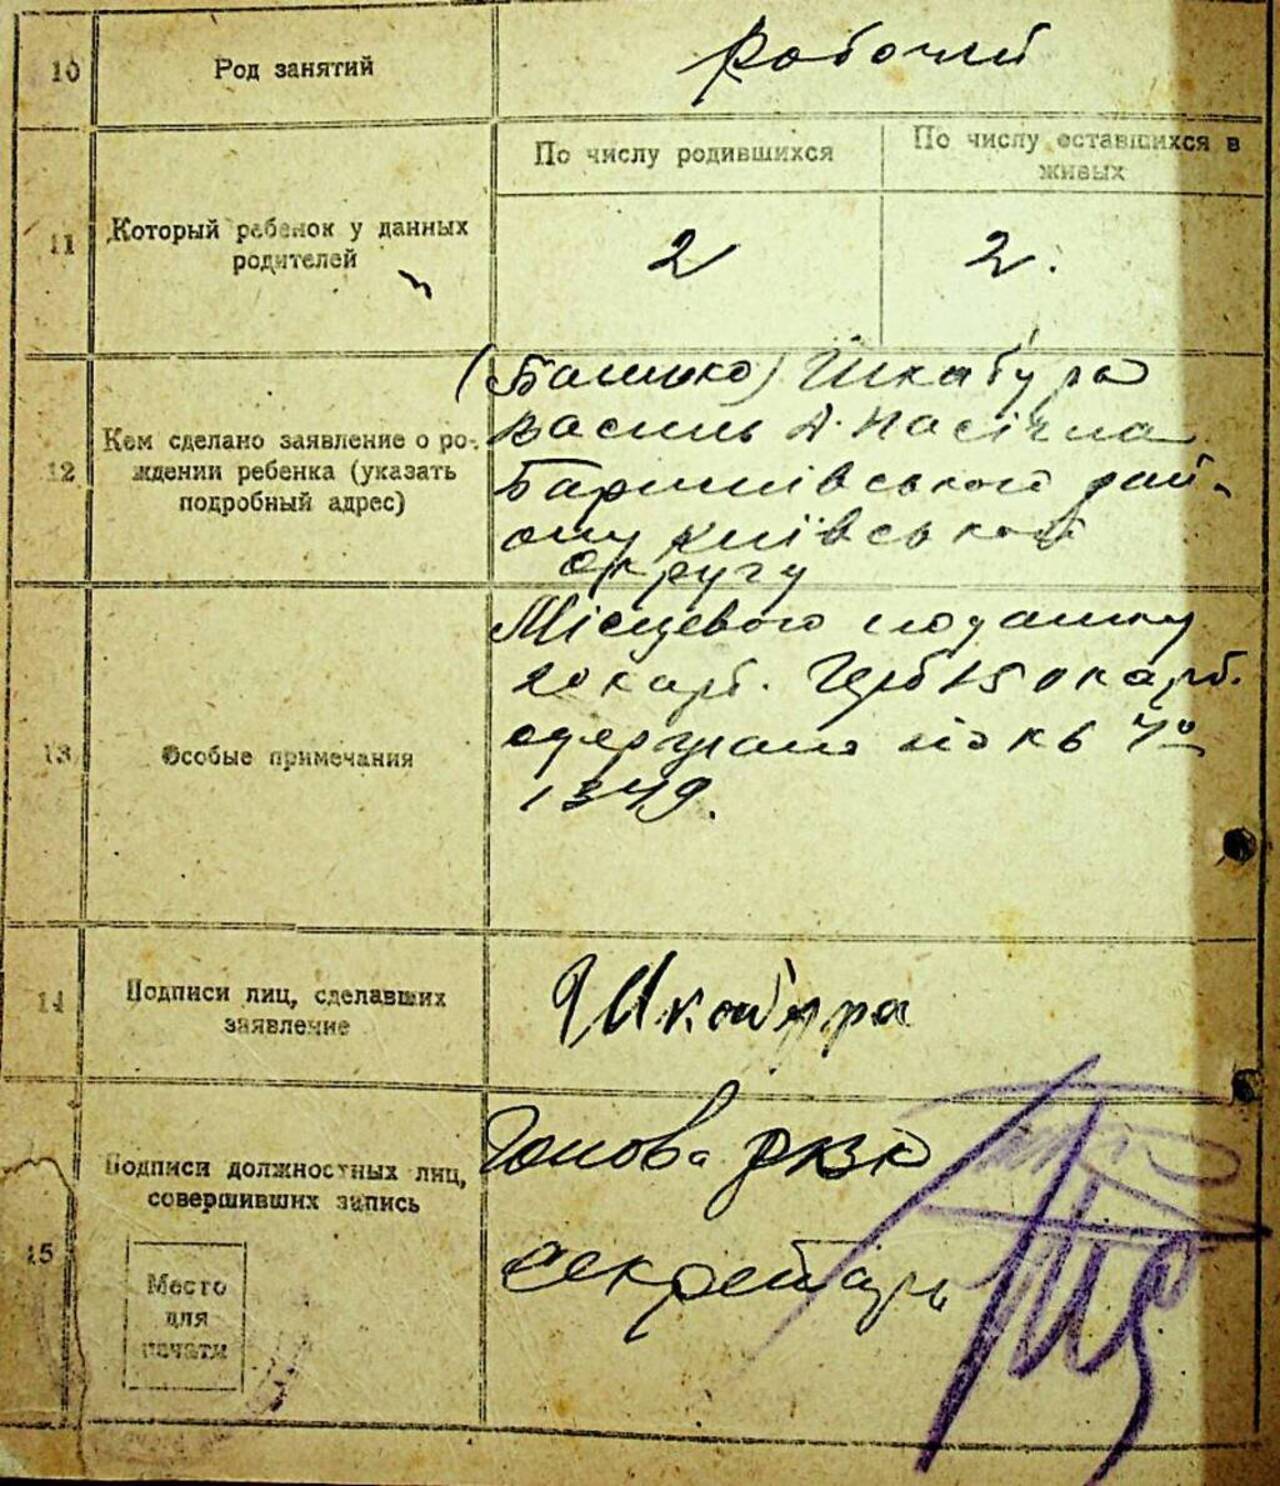 10 Род занятий Рабочий
По числу родившихся
По числу оставшихся в
живых
11 Который ребенок у данных
родителей
2 2.
12 Кем сделано заявление о ро-
ждении ребенка (указать
подробный адрес)
(Батько) Шкабура
Василь д. Пасічна
Баришівського рай-
ону Київської
округу
13 Особые примечания
Місцевого податку
20 карб. Герб 150 карб.
одержано по кв
1349.
14 Подписи лиц, сделавших
заявление
Шкабура
15 Подписи должностных лиц,
совершивших запись
Голова РВК
Секретарь
Место
для
печати